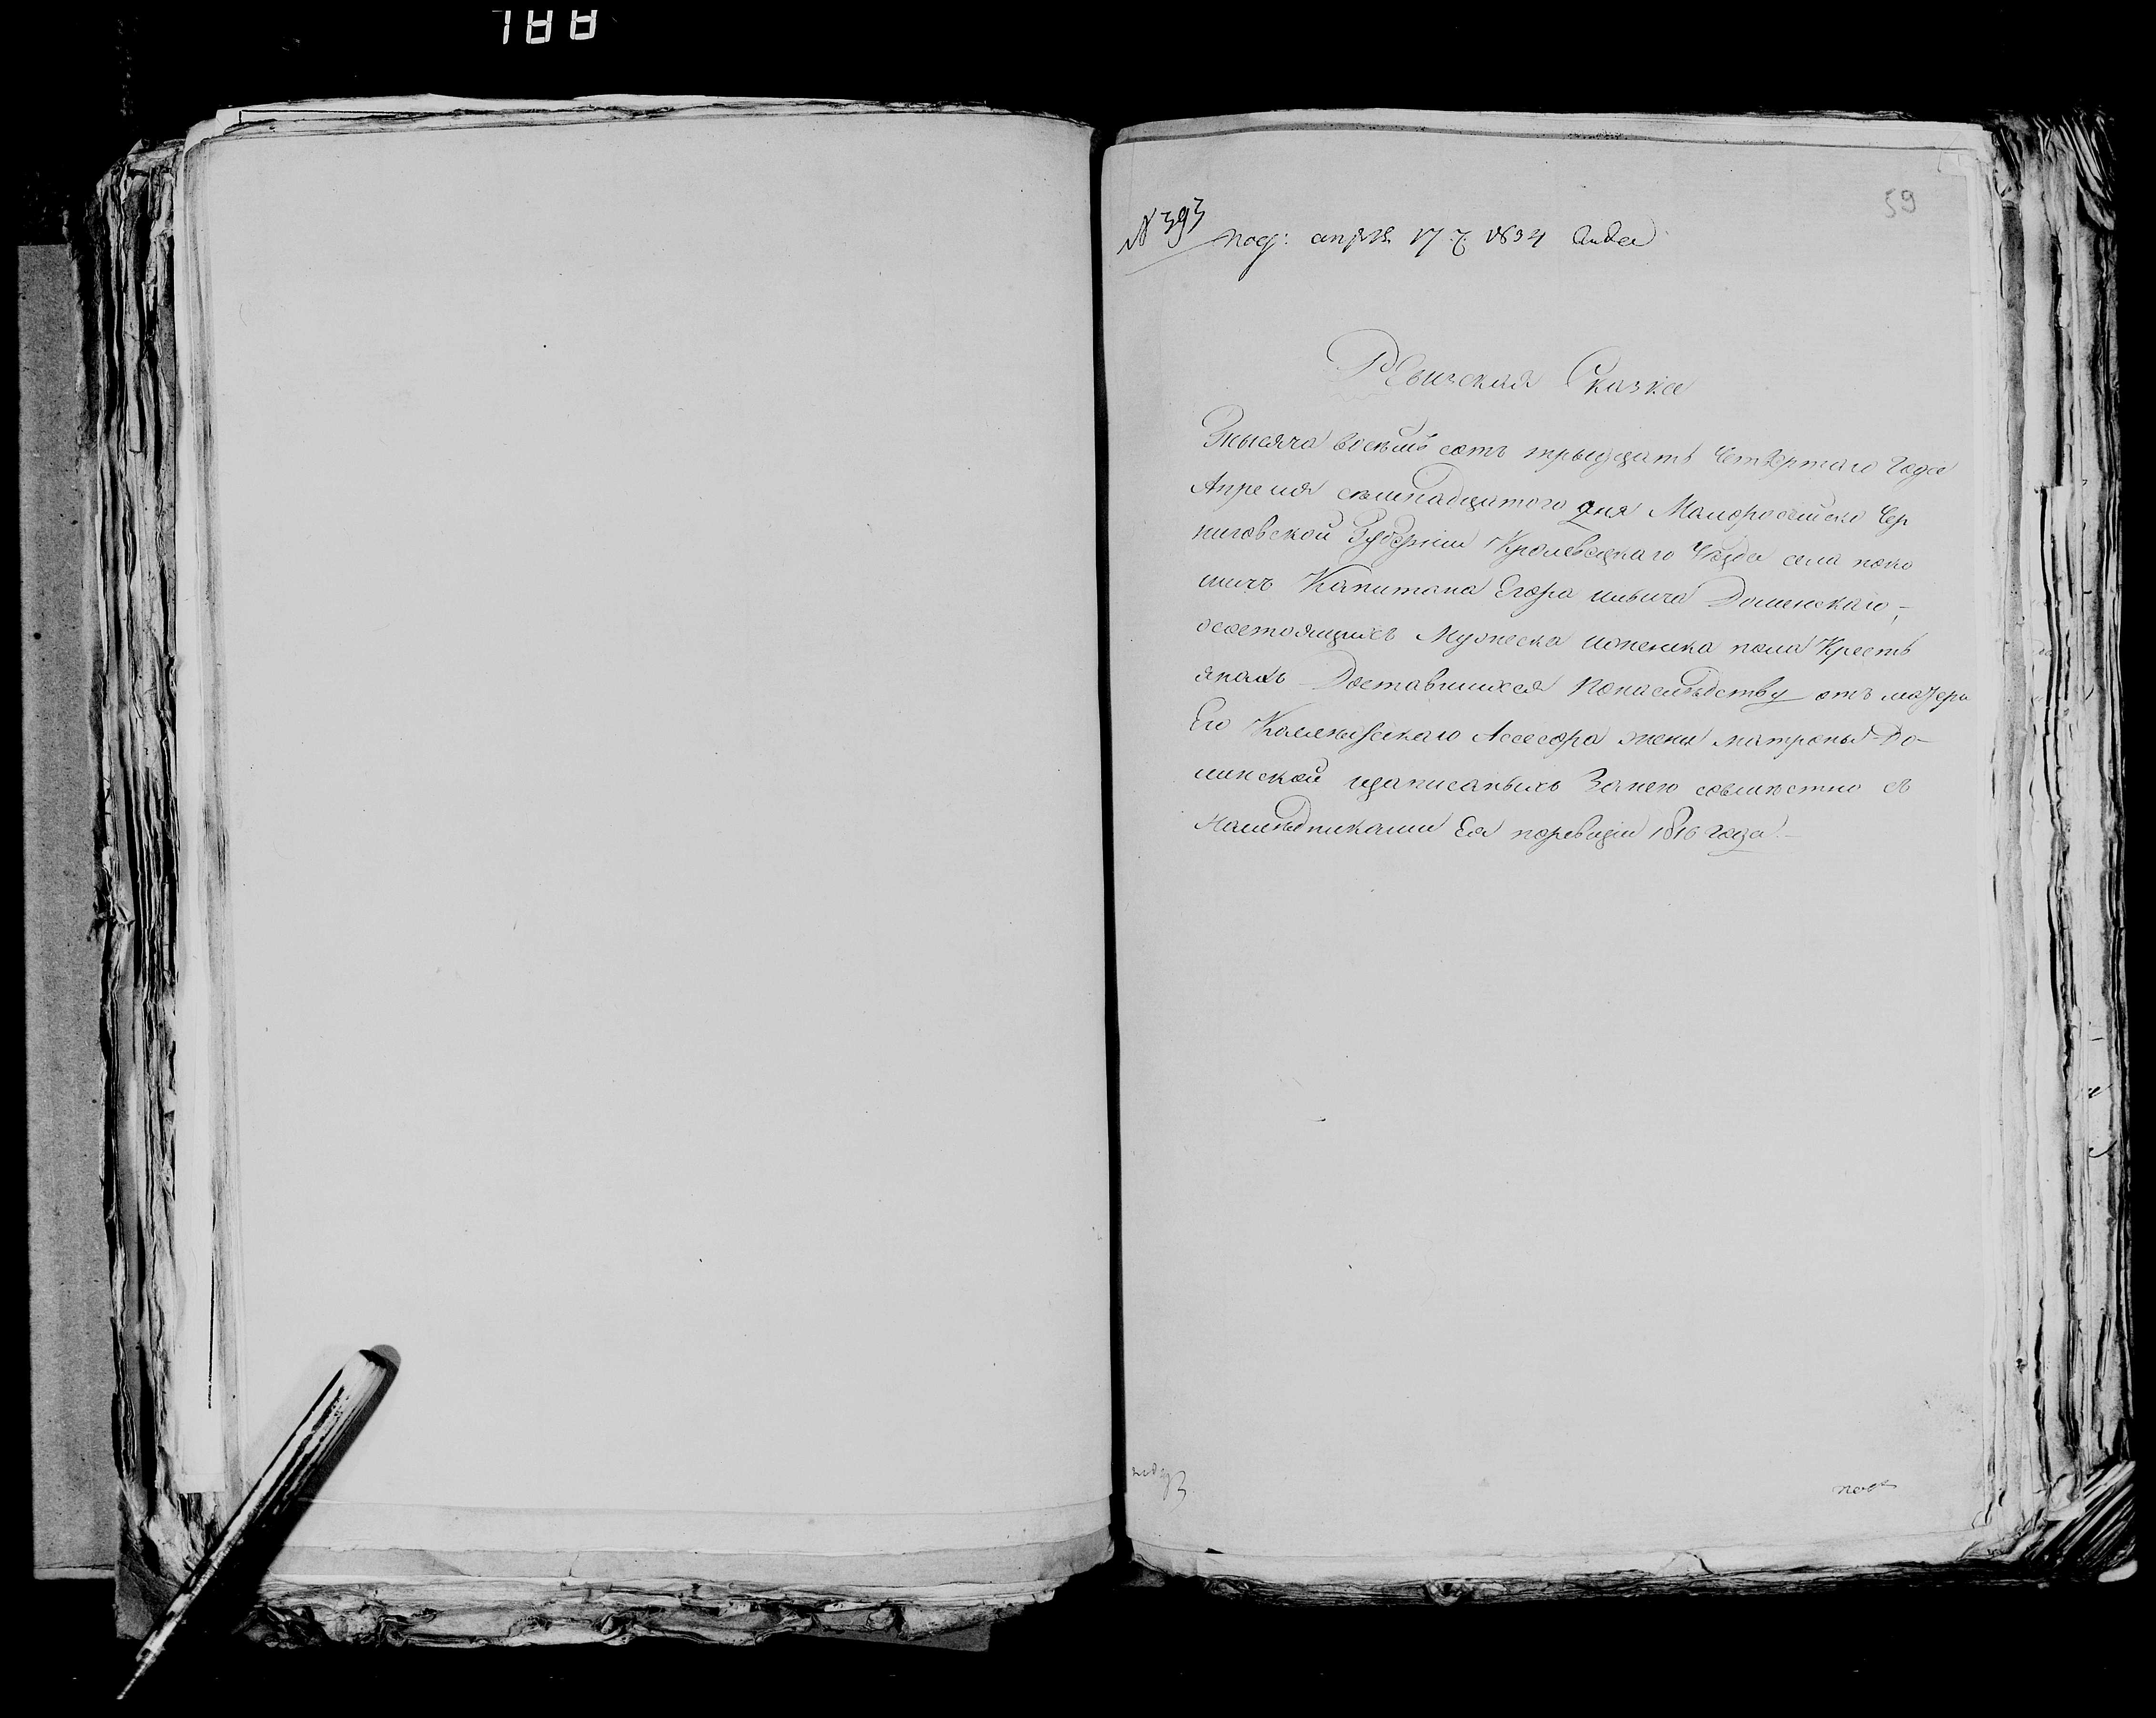 188
59
№ 393
под: апреля 17 д. 1834 года
Ревизская Сказка
Тысяча восемь сотъ трыдцать Четвертаго Года
Апреля семнадцатого дня Малоросийско Чер
ниговской Губернии Кролевецкаго Уезда села поно
Капитана Егора ильича Долинского,
осостоящихъ Мужеска иженска пола Кресть
янахъ Доставшихся Понаследству отъ матери
Его Колежскаго Асесора жены матроны До-
линской изаписаныхъ Занею совместно съ
Наследниками Ея поревизии 1816 года